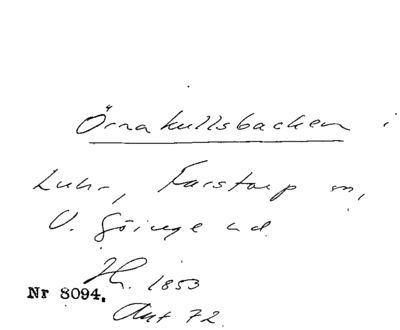 Örnakullsbacken i
Luhr, Farstorp sn,
V. Göinge hd.
Hs. 1853
Nr 8094.
Ant 72.